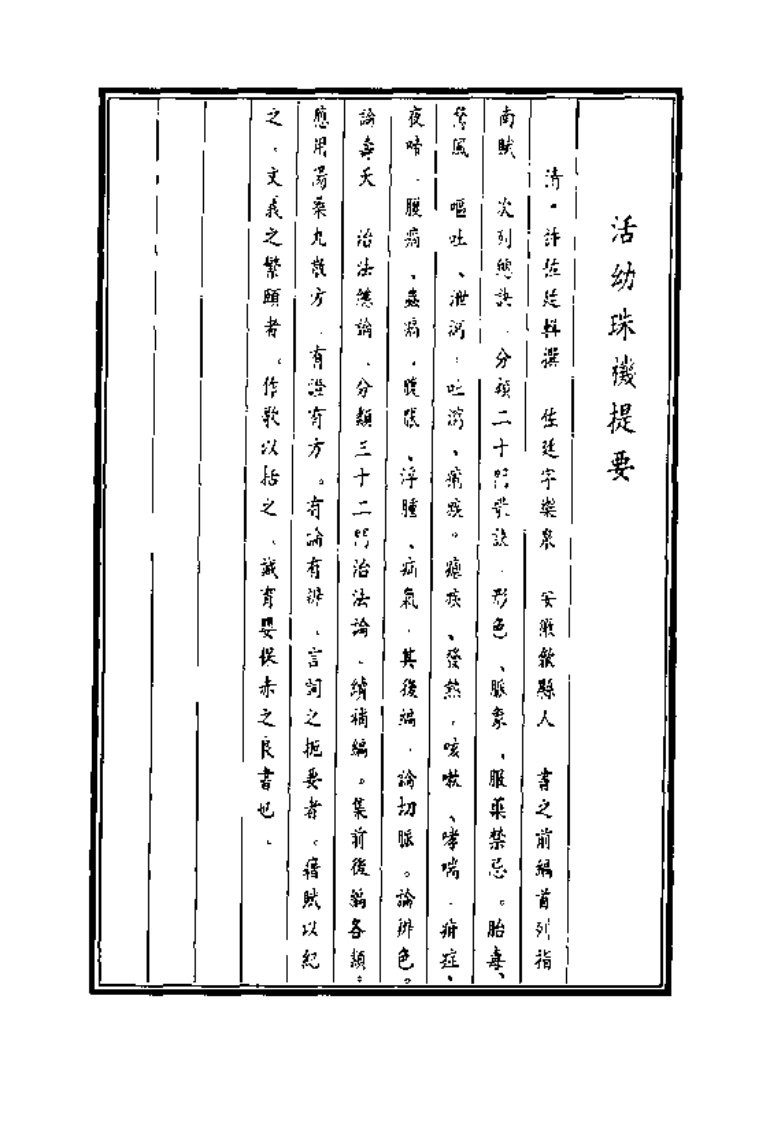 活幼珠機提要
清。許佐廷輯撰 佐廷字樂泉 安徽歙縣人 書之前編首列指
南賦 次列總訣、分類二十門歌訣、形色、脈象、服藥禁忌。胎毒、
驚風 嘔吐、泄瀉、吐瀉、痢疾。瘧疾、發熱、咳嗽、哮喘、疳症、
夜啼、腹痛、蟲痛、腹脹、浮腫、疝氣、其後編、論切脈。論辨色。
論壽夭 治法總論、分類三十二門治法論、續補編。集前後編各類。
應用湯藥丸散方、有證有方。有論有辨、言詞之扼要者。藉賦以紀
之、文義之繁賾者。作歌以括之、誠育嬰保赤之良書也。